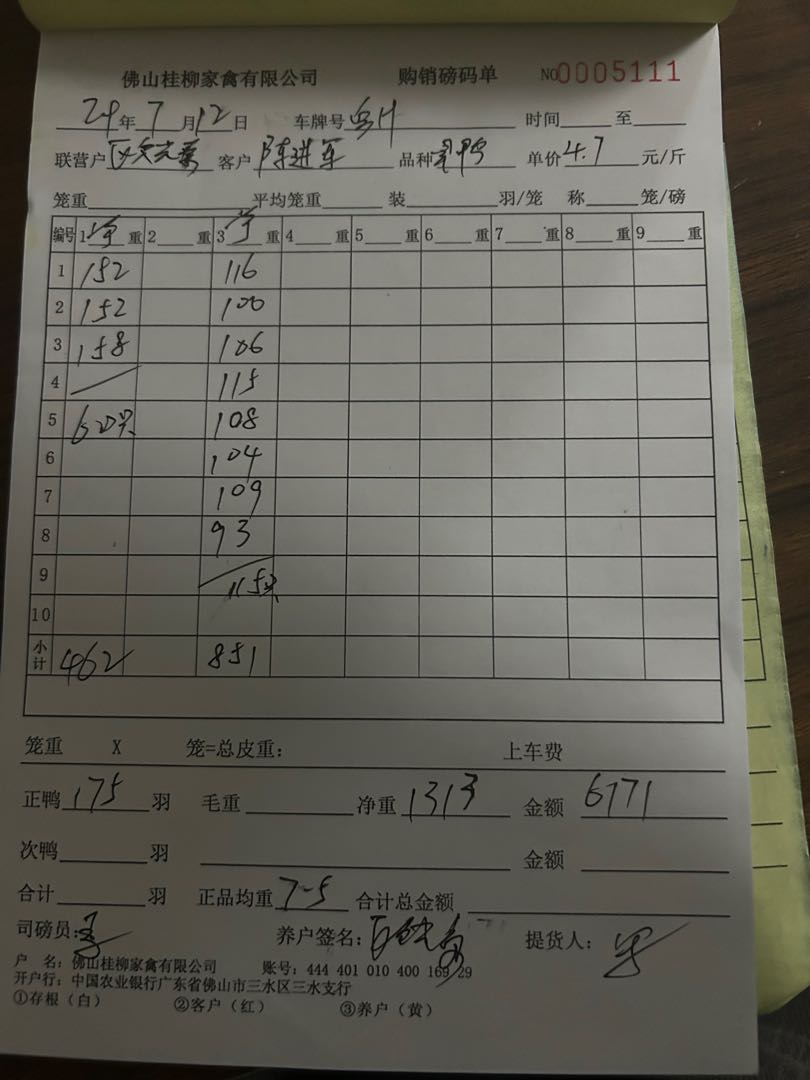 佛山桂柳家禽有限公司 购销磅码单 NO0005111
24年7月12日 车牌号 时间 至
联营户 客户 陈进军 品种 单价4.7元/斤
笼重 平均笼重 装 羽/笼 称 笼/磅
编号 1 重 2 重 3 重 4 重 5 重 6 重 7 重 8 重 9 重
1 152 116
2 152 100
3 158 106
4 115
5 60只 108
6 104
7 109
8 93
9 115只
10
小计 462 851
笼重 X 笼=总皮重: 上车费
正鸭175羽 毛重 净重1313 金额6171
次鸭 羽 金额
合计 羽 正品均重7-5 合计总金额
司磅员: 养户签名: 提货人:
户 名: 佛山桂柳家禽有限公司 账号: 444 401 010 400 169 29
开户行: 中国农业银行广东省佛山市三水区三水支行
①存根(白) ②客户(红) ③养户(黄)